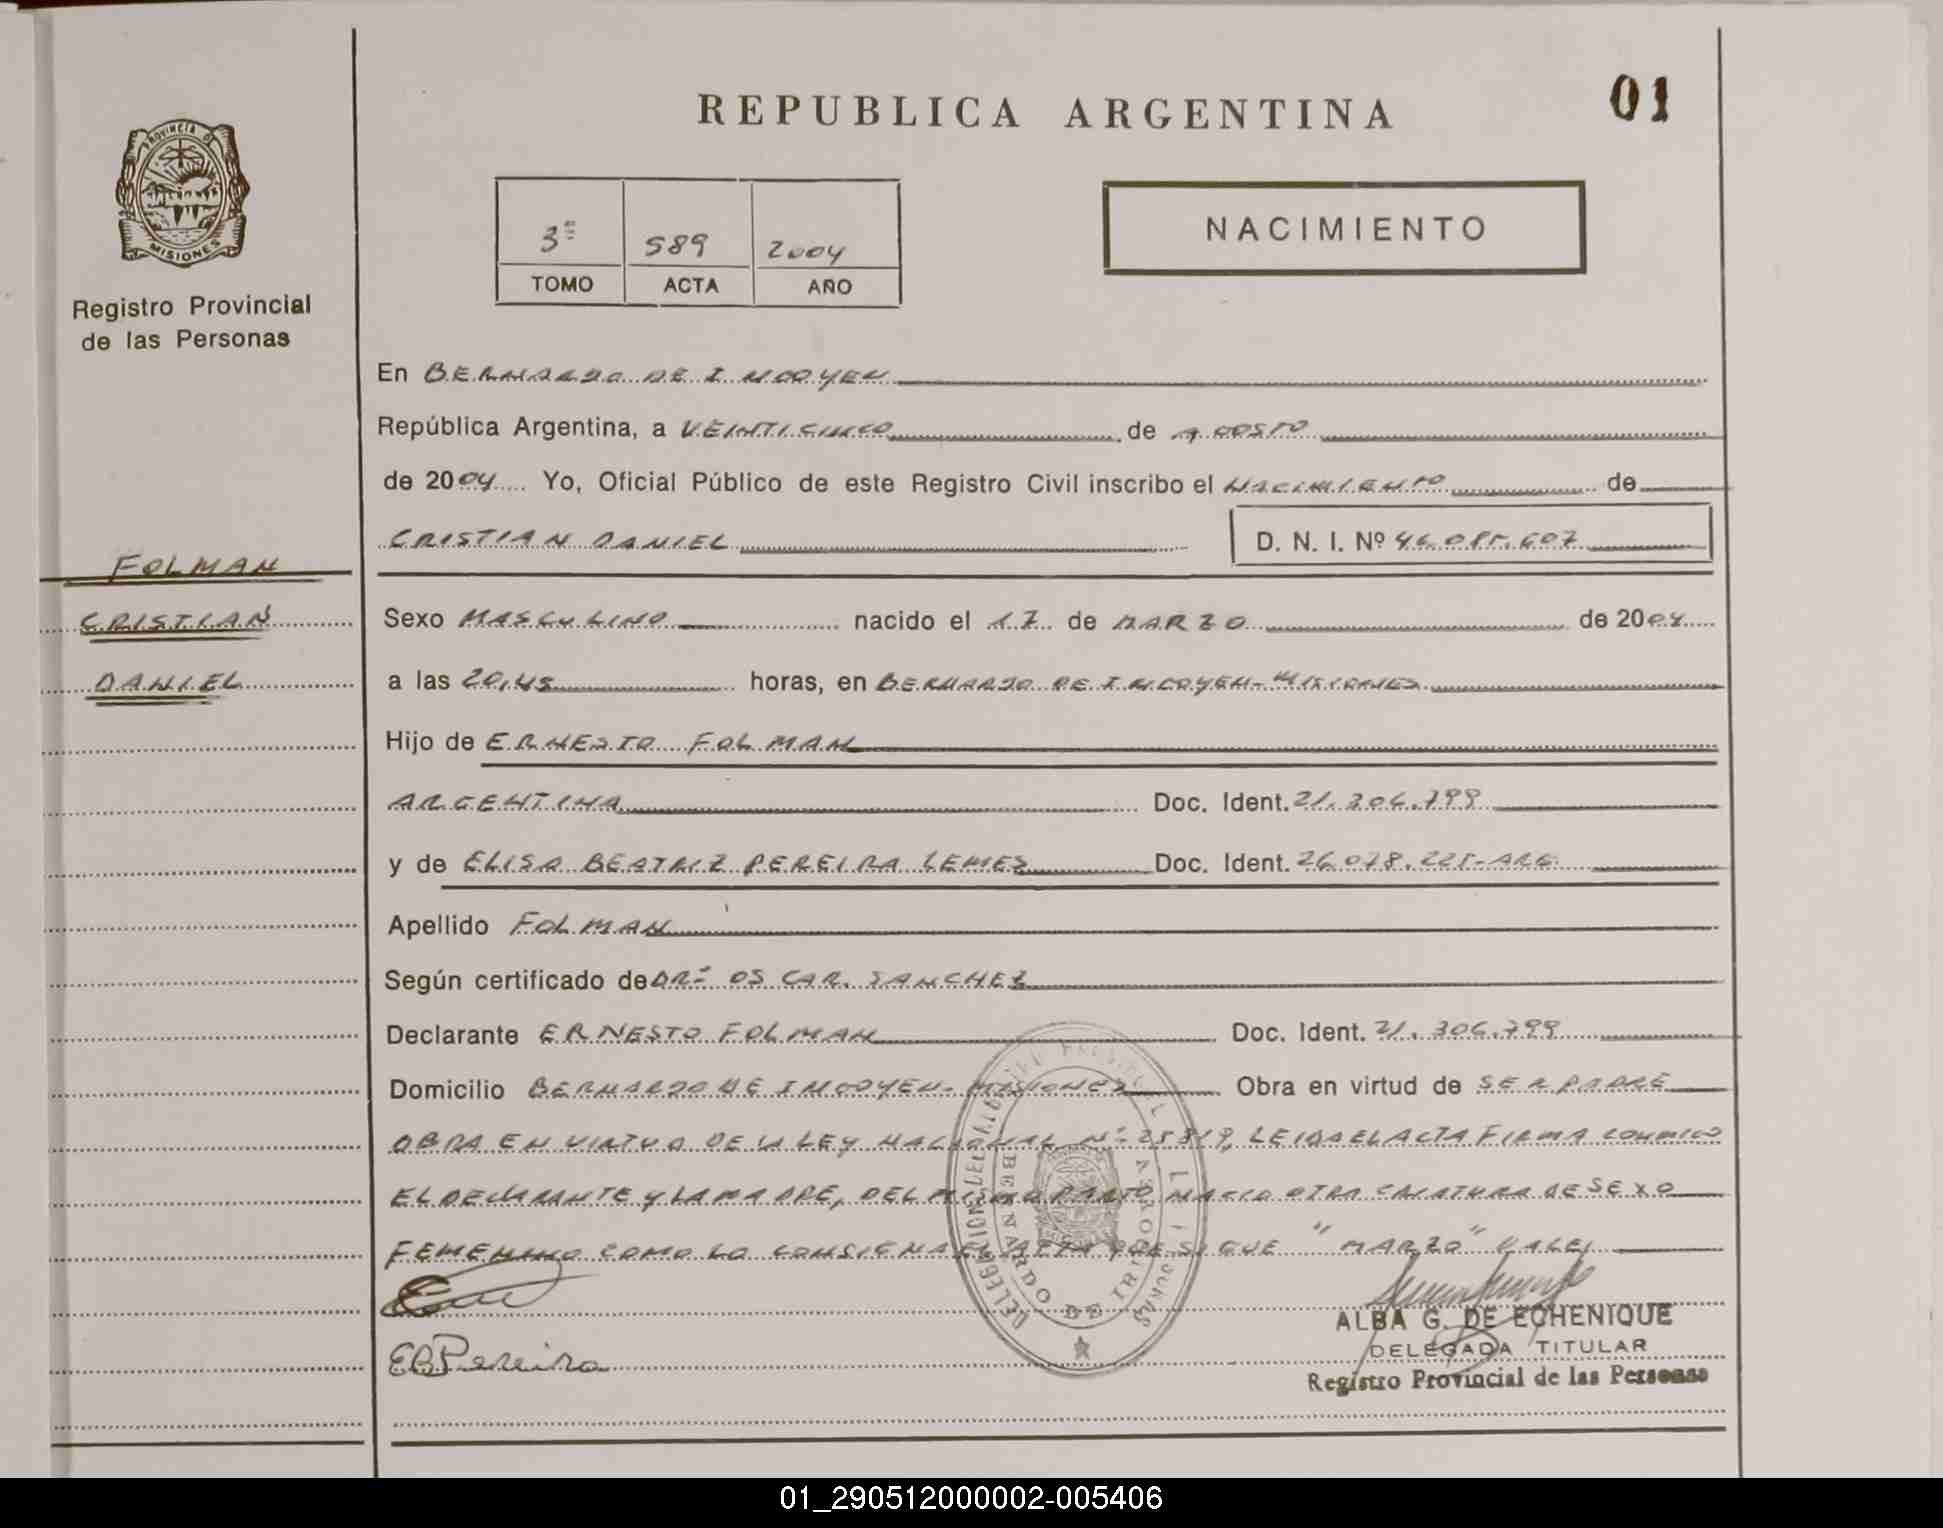 REPUBLICA ARGENTINA
01
PROVINCIA DE
MISIONES
Registro Provincial
de las Personas
3º 589 2004
TOMO ACTA AÑO
NACIMIENTO
En BERNARDO DE IRIGOYEN
República Argentina, a VEINTICINCO de AGOSTO
de 2004 Yo, Oficial Público de este Registro Civil inscribo el NACIMIENTO de
CRISTIAN DANIEL D. N. I. Nº 46.085.607
FOLMAN
CRISTIAN
DANIEL
Sexo MASCULINO nacido el 17 de MARZO de 2004
a las 20,45 horas, en BERNARDO DE IRIGOYEN-MISIONES
Hijo de ERNESTO FOLMAN
ARGENTINA Doc. Ident. 21.306.799
y de ELISA BEATRIZ PEREIRA LEMES Doc. Ident. 26.078.225-ARG.
Apellido FOLMAN
Según certificado de DRº OSCAR SANCHEZ
Declarante ERNESTO FOLMAN Doc. Ident. 21.306.799
Domicilio BERNARDO DE IRIGOYEN-MISIONES Obra en virtud de SER PADRE
OBRA EN VIRTUD DE LA LEY NACIONAL Nº 25819, LEIDA EL ACTA FIRMA CONMIGO
EL DECLARANTE Y LA MADRE, DEL MISMO PARTO NACIO OTRA CRIATURA DE SEXO
FEMENINO COMO LO CONSIGNA EL ACTA QUE SIGUE "MARZO" VALE
EBPereira
DELEGACION DEL
BERNARDO DE IRIGOYEN
ALBA G. DE ECHENIQUE
DELEGADA TITULAR
Registro Provincial de las Personas
01_290512000002-005406